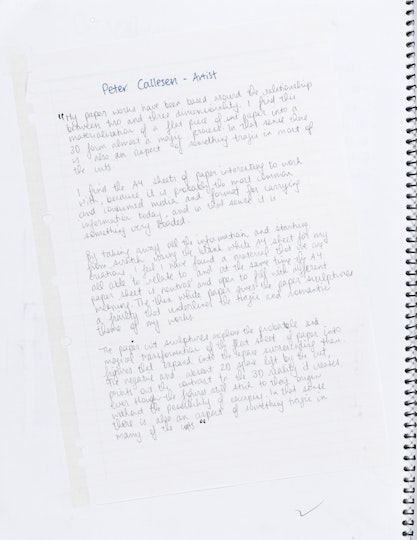 Peter Callesen - Artist
"My paper works have been based around the relationship
between two and three dimensionality. I find this
materialisation of a flat piece of paper into a
3D form almost a magic process. In that sense there
is also an aspect of something tragic in most of
the cuts.
I find the A4 sheets of paper interesting to work
with, because it is probably the most common
and consumed media and format for carrying
information today, and in that sense it is
something very loaded.
By taking away all the information and starting
from scratch using the blank white A4 sheet for my
creations I feel I have found a material that we are
all able to relate to and at the same time the A4
paper sheet is neutral and open to fill with different
The thin white paper gives the paper sculptures
a frailty that underlines the tragic and romantic
theme of my works.
The paper cut sculptures explore the probable and
magical transformation of the flat sheet of paper into
figures that expand into the space surrounding them.
The negative and absent 2D space left by the cut,
points out the contrast to the 3D reality it creates
even though the figures still stick to their origin
without the possibility of escaping. In that sense
there is also an aspect of something tragic in
many of the cuts"